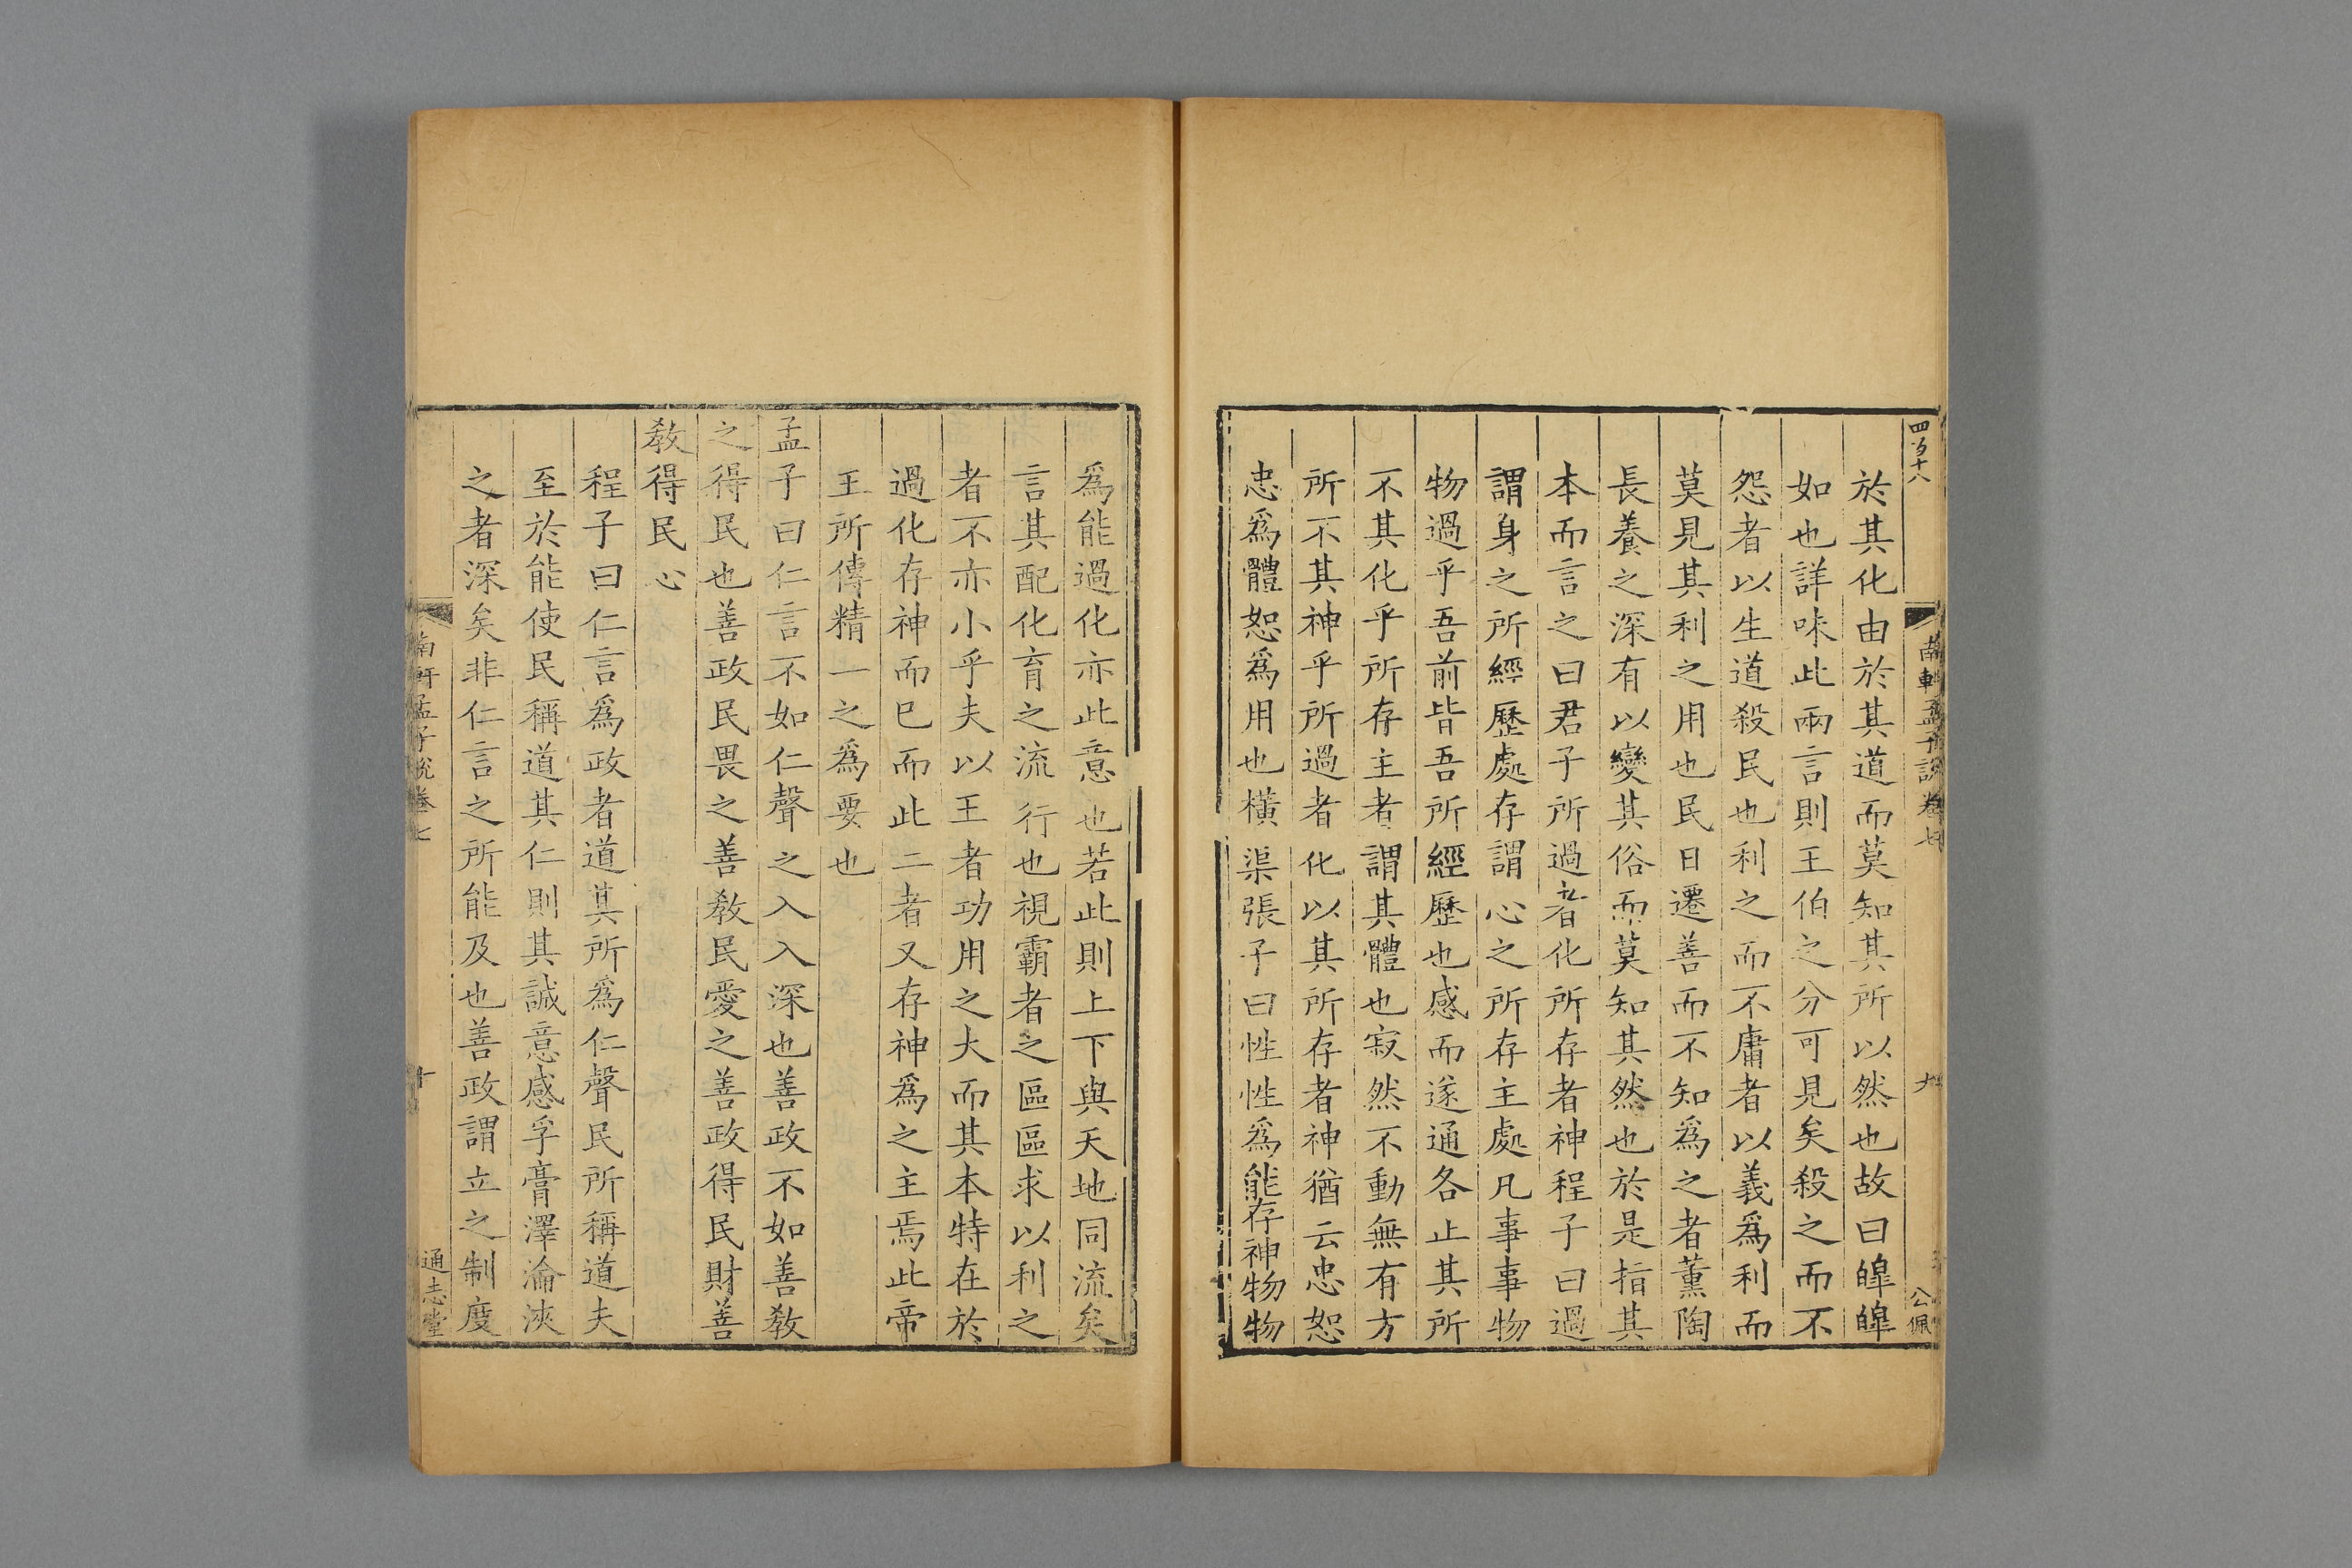 四百十八
南軒孟子說卷七
九
公佩
於其化由於其道而莫知其所以然也故曰皥皥
如也詳味此兩言則王伯之分可見矣殺之而不
怨者以生道殺民也利之而不庸者以義爲利而
莫見其利之用也民日遷善而不知爲之者薰陶
長養之深有以變其俗而莫知其然也於是指其
本而言之曰君子所過者化所存者神程子曰過
謂身之所經歷處存謂心之所存主處凡事事物
物過乎吾前皆吾所經歷也感而遂通各止其所
不其化乎所存主者謂其體也寂然不動無有方
所不其神乎所過者化以其所存者神猶云忠恕
忠爲體恕爲用也橫渠張子曰性性爲能存神物物
爲能過化亦此意也若此則上下與天地同流矣
言其配化育之流行也視霸者之區區求以利之
者不亦小乎夫以王者功用之大而其本特在於
過化存神而已而此二者又存神爲之主焉此帝
王所傳精一之爲要也
孟子曰仁言不如仁聲之入人深也善政不如善敎
之得民也善政民畏之善敎民愛之善政得民財善
敎得民心
程子曰仁言爲政者道其所爲仁聲民所稱道夫
至於能使民稱道其仁則其誠意感孚膏澤淪浹
之者深矣非仁言之所能及也善政謂立之制度
南軒孟子說卷七
十
通志堂